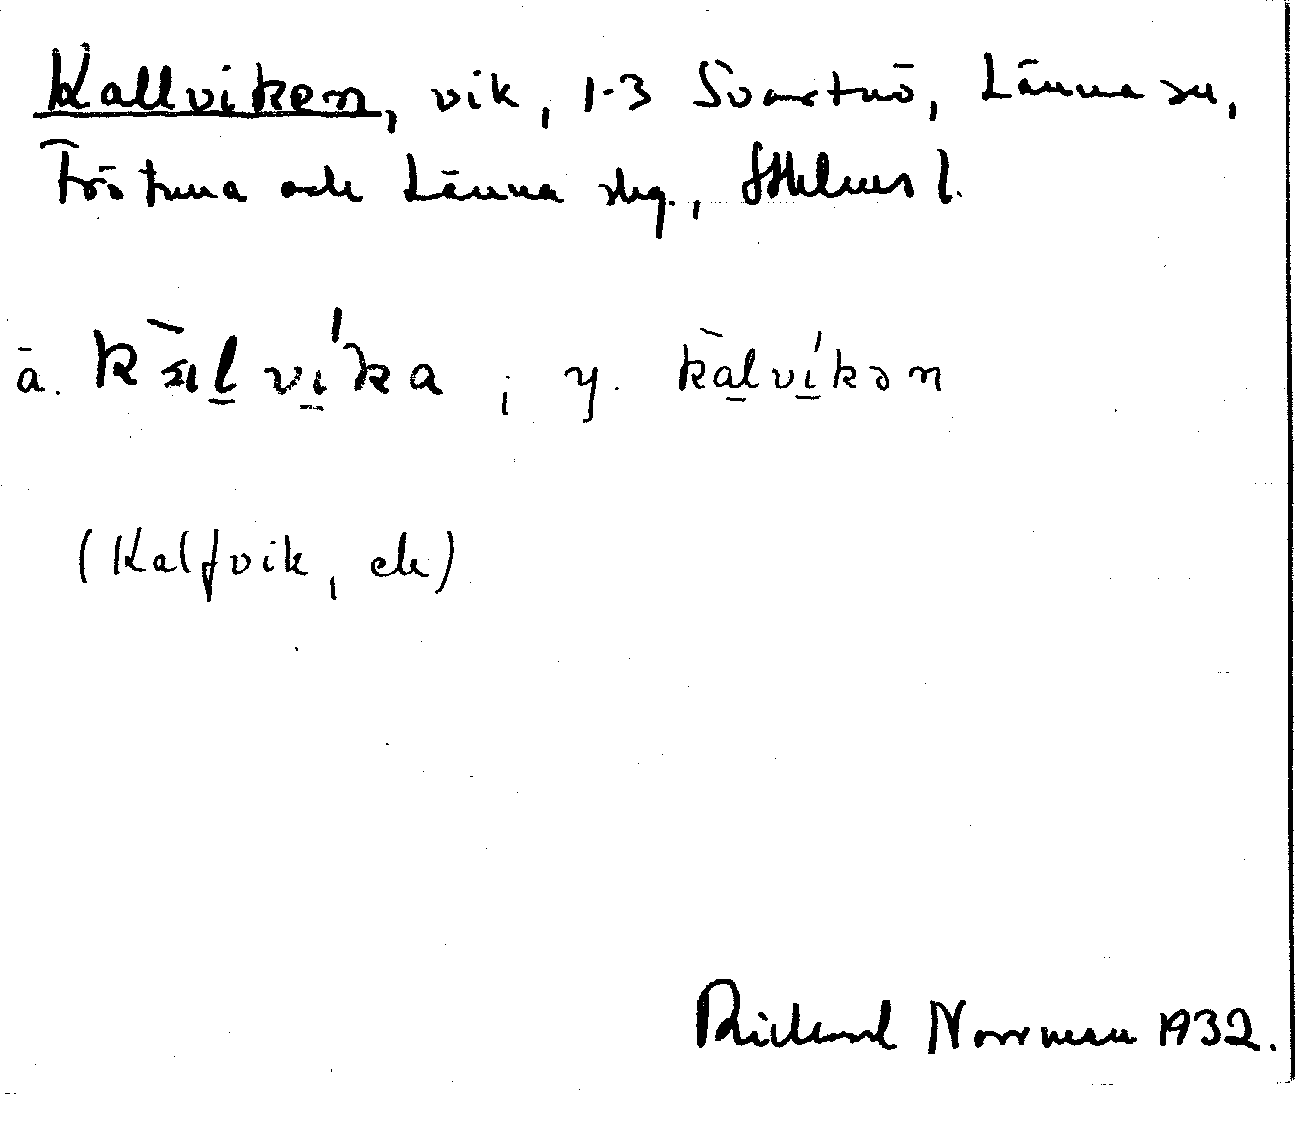 Kallviken, vik, 1-3 Svartnö, Länna sn,
Frötuna och Länna skg., Sthlms l.
ä. kälvika; y. kalvikən
(Kalfvik, ek)
Rickard Norrman 1932.